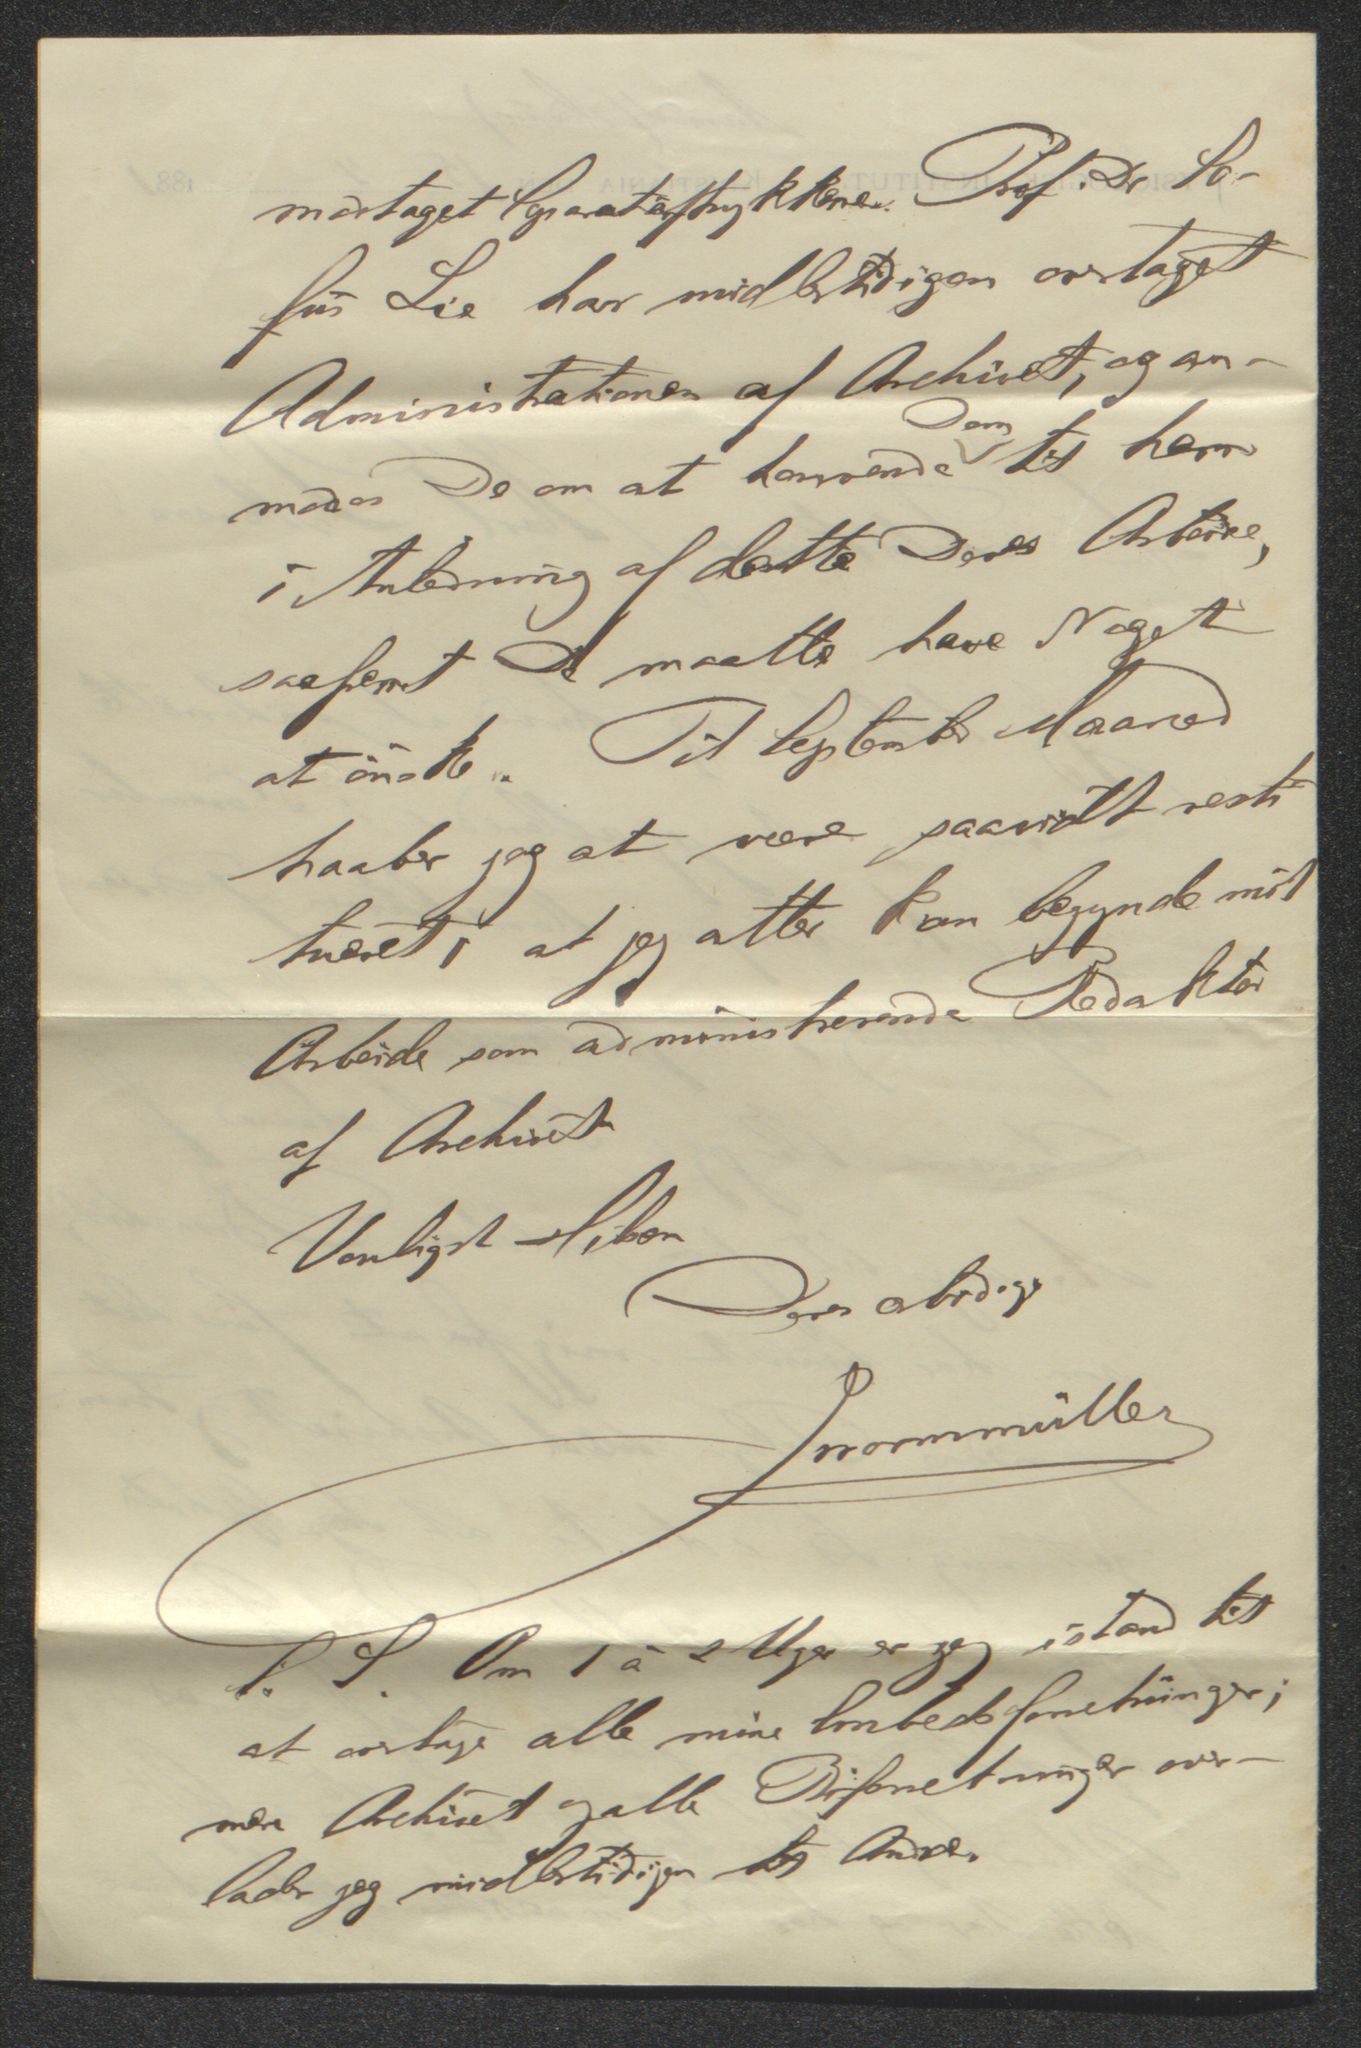 modtaget Separataftrykkene. Prof. Dr So-
fus Lie har midlertidigen overtaget
Administrationen af Archivet, og an-
modes De om at henvende Dem til ham
i Anledning af dette Deres Arbeide,
saafremt De maatte have Noget
at önske. Til September Maaned
haaber jeg at være saavidt resti
tueret, at jeg atter kan begynde mit
Arbeide som administrerende Redaktör
af Archivet
Venligst Hilsen
Deres ærbødige
Worm Müller
P. S. Om 1 à 2 Uger er jeg istand til
at overtage alle mine Embedsforretninger;
men Archivet og alle Biforretninger over-
lader jeg midlertidigen til Andre.